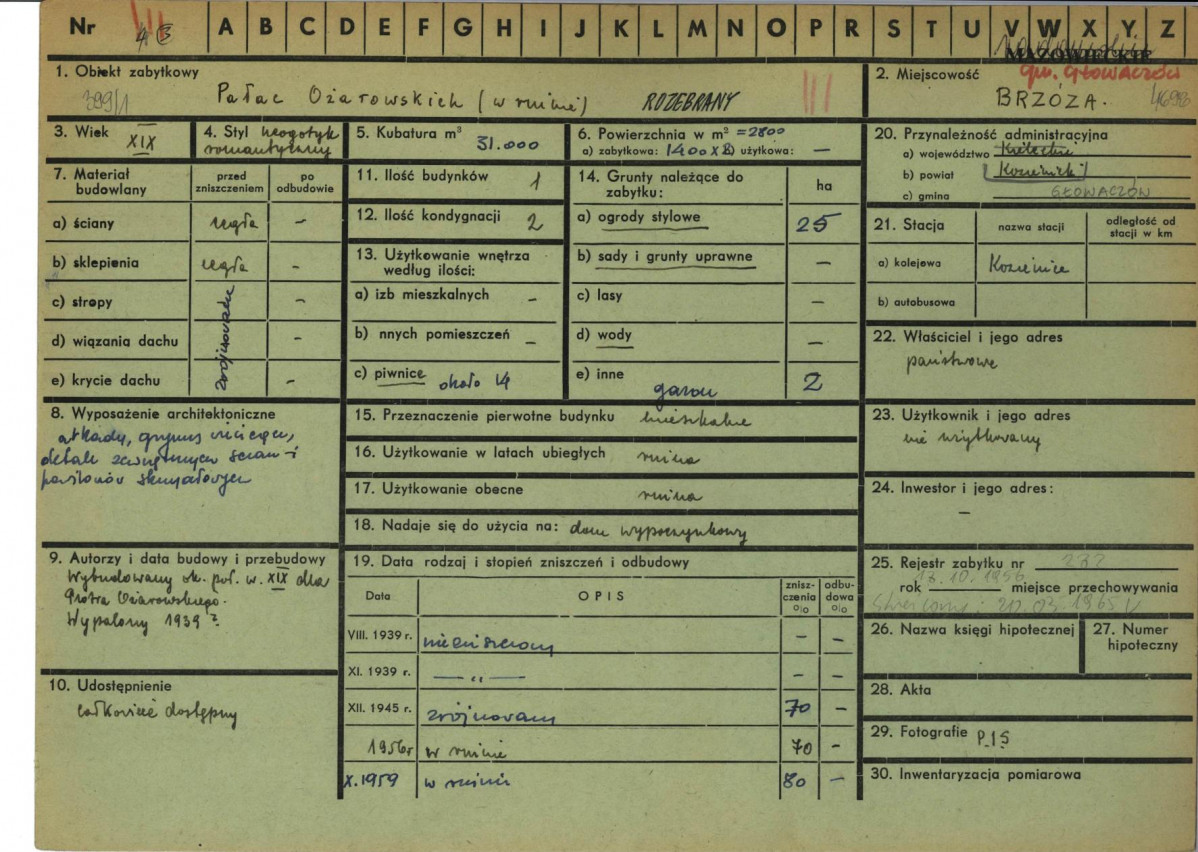 Nr III A B C D E F G H I J K L M N O P R S T U V W X Y Z
gm. GŁOWACZÓW
1. Obiekt zabytkowy
399/1 Pałac Ożarowskich (w ruinie) ROZEBRANY III
2. Miejscowość
BRZÓZA.
3. Wiek XIX
4. Styl neogotyk
romantyczny
5. Kubatura m³
31.000
6. Powierzchnia w m² = 2800
a) zabytkowa: 1400 x 2 b) użytkowa: —
20. Przynależność administracyjna
a) województwo Kieleckie
b) powiat Kozienicki
c) gmina GŁOWACZÓW
7. Materiał budowlany
przed zniszczeniem
po odbudowie
a) ściany cegła –
b) sklepienia cegła –
c) stropy –
d) wiązania dachu –
e) krycie dachu –
8. Wyposażenie architektoniczne
arkady, gzyms wieńczący,
detale zewnętrznych ścian i
9. Autorzy i data budowy i przebudowy
Wybudowany ok. poł. w. XIX dla
Piotra Ożarowskiego.
Wypalony 1939 ?
10. Udostępnienie
całkowicie dostępny
11. Ilość budynków 1
12. Ilość kondygnacji 2
13. Użytkowanie wnętrza
według ilości:
a) izb mieszkalnych –
b) nnych pomieszczeń –
c) piwnice około 14
14. Grunty należące do
zabytku: ha
a) ogrody stylowe 25
b) sady i grunty uprawne –
c) lasy –
d) wody –
e) inne 2
15. Przeznaczenie pierwotne budynku mieszkalne
16. Użytkowanie w latach ubiegłych ruina
17. Użytkowanie obecne ruina
18. Nadaje się do użycia na: dom wypoczynkowy
19. Data rodzaj i stopień zniszczeń i odbudowy
Data OPIS znisz-
czenia
o/o odbu-
dowa
o/o
VIII. 1939 r. niezniszczony – –
XI. 1939 r. — „ — – –
XII. 1945 r. zrujnowany 70 –
1956 r w ruinie 70 –
X. 1959 w ruinie 80 –
21. Stacja nazwa stacji odległość od
stacji w km
a) kolejowa Kozienice
b) autobusowa
22. Właściciel i jego adres
państwowe
23. Użytkownik i jego adres
nie użytkowany
24. Inwestor i jego adres:
–
25. Rejestr zabytku nr 232
13.10.1956
rok miejsce przechowywania
Skreślony: 20.03.1965
26. Nazwa księgi hipotecznej
27. Numer
hipoteczny
28. Akta
29. Fotografie P.I.S
30. Inwentaryzacja pomiarowa